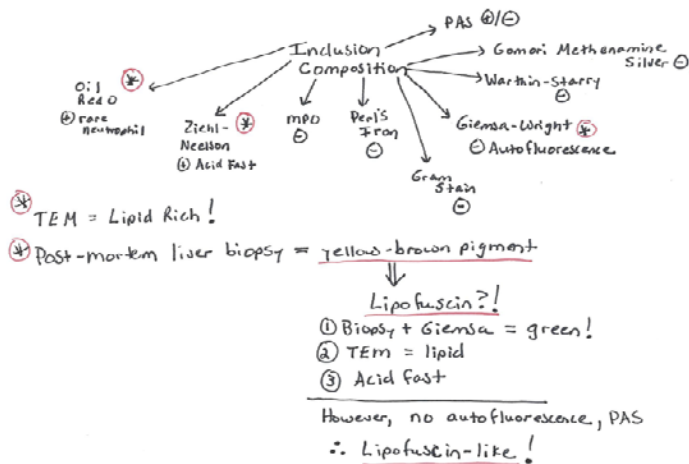 PAS ⊕/⊖
Inclusion
Composition
Gomori Methenamine
Silver ⊖
Warthin-Starry
⊖
Giemsa-Wright *
⊖ Autofluorescence
Gram
Stain
⊖
Perl's
Iron
⊖
MPO
⊖
Ziehl-
Neelson *
⊕ Acid Fast
Oil *
Red O
⊕ rare
neutrophil
* TEM = Lipid Rich!
* Post-mortem liver biopsy = yellow-brown pigment
Lipofuscin?!
① Biopsy + Giemsa = green!
② TEM = lipid
③ Acid Fast
However, no autofluorescence, PAS
∴ Lipofuscin-like!